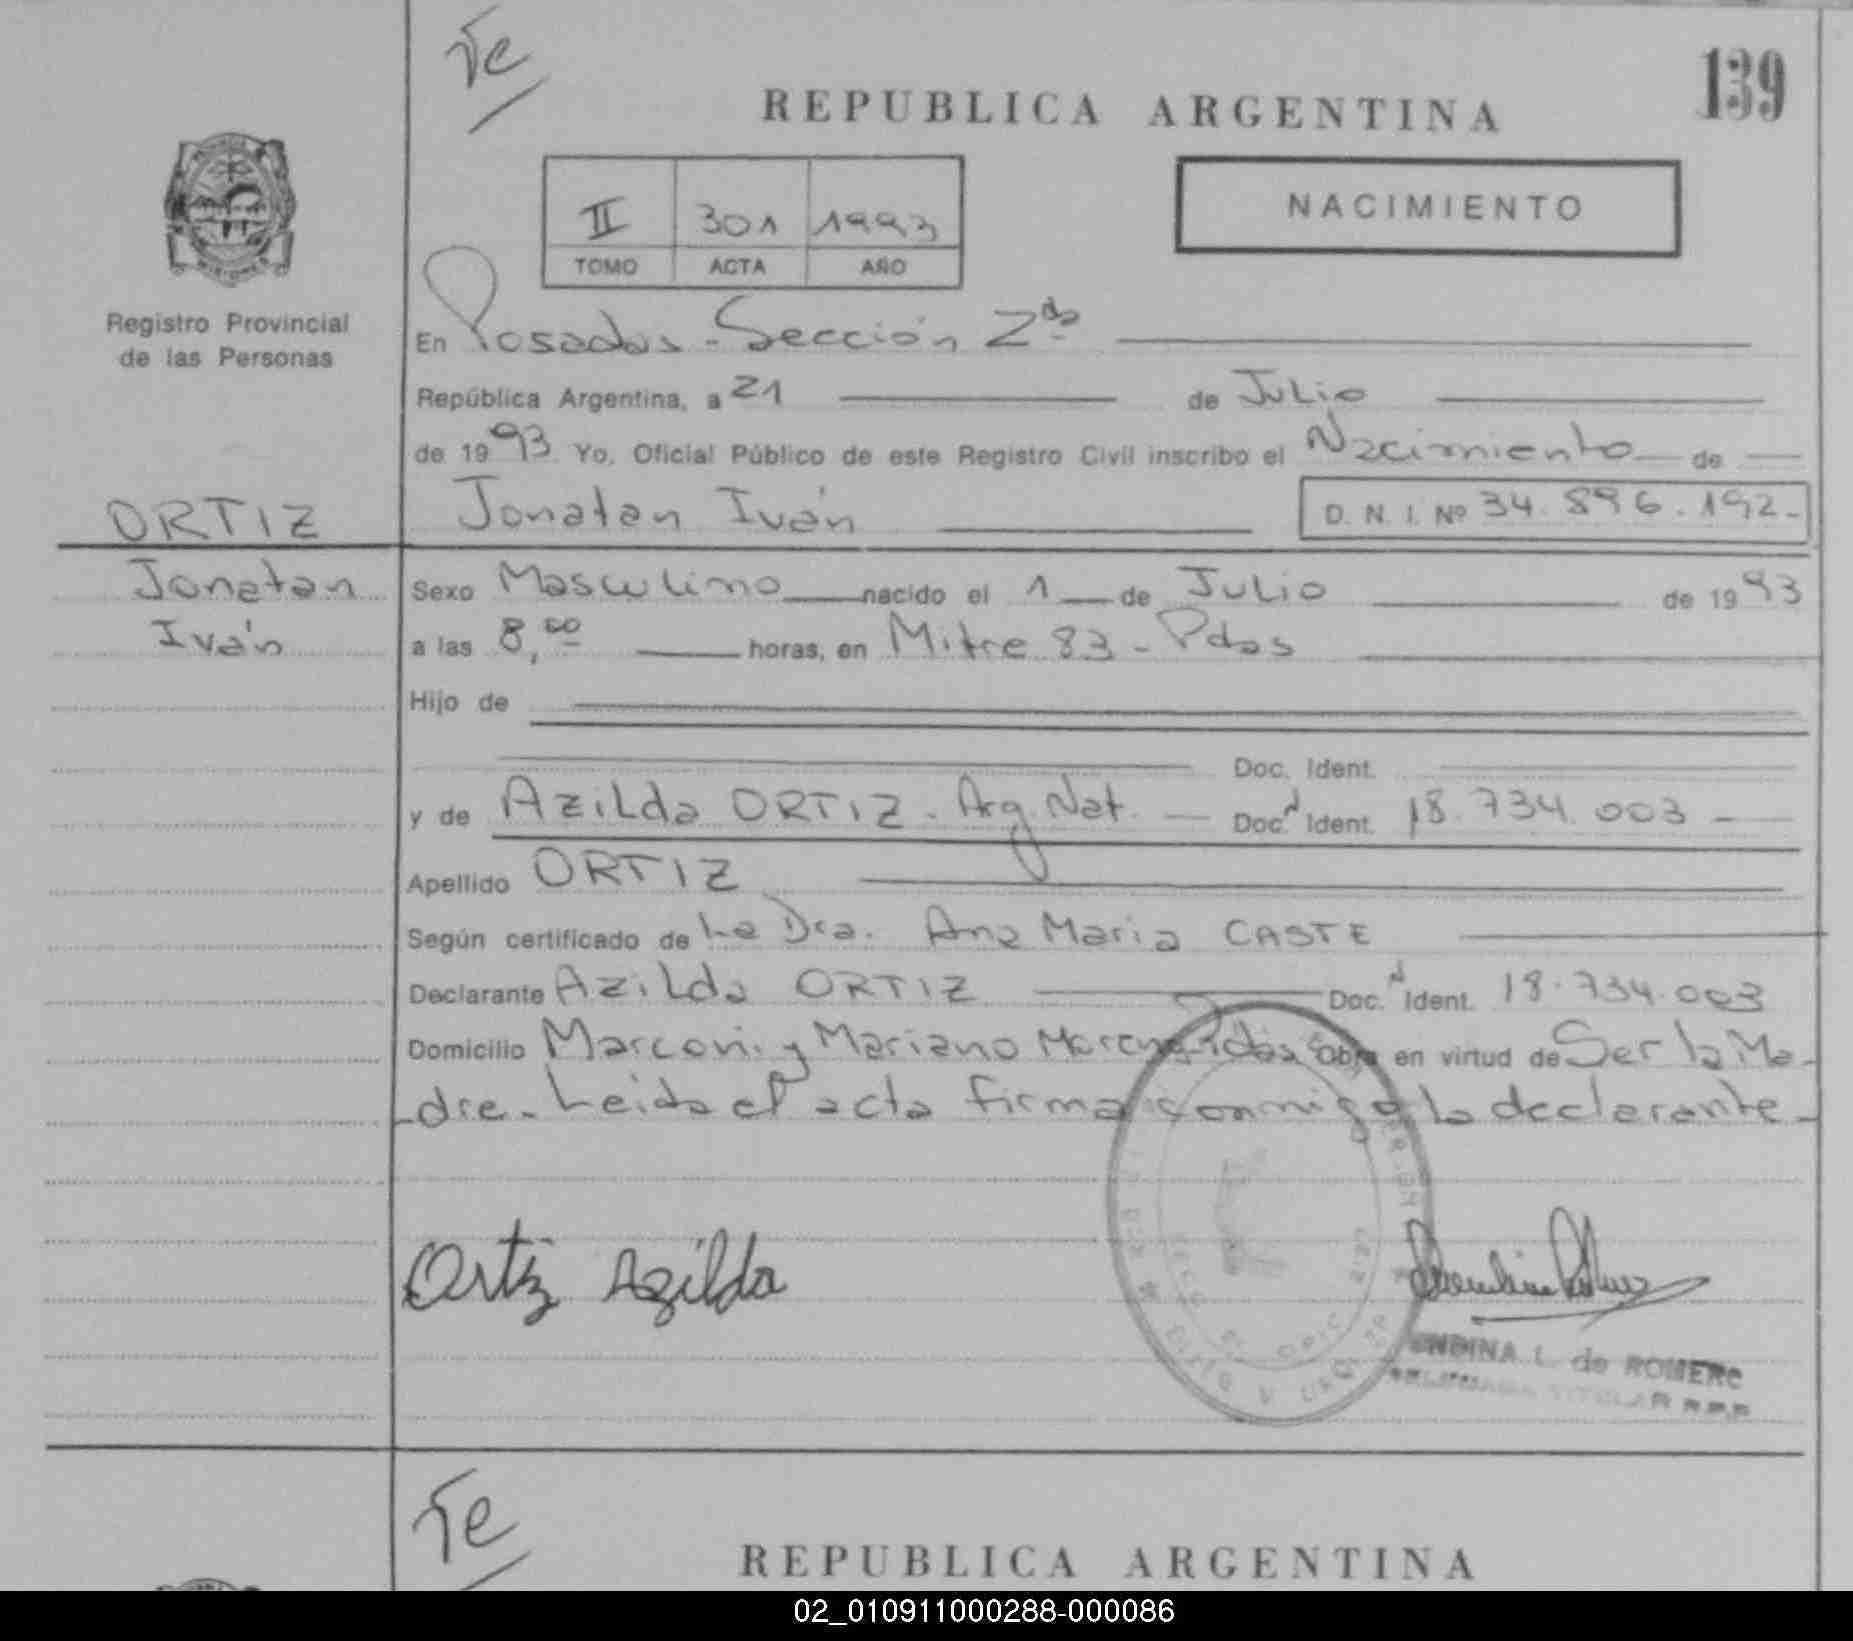 139
REPUBLICA ARGENTINA
NACIMIENTO
II 301 1993
TOMO ACTA AÑO
Registro Provincial
de las Personas
En Posadas - Sección 2da
República Argentina, a 21 de Julio
de 1993 Yo, Oficial Público de este Registro Civil inscribo el Nacimiento de
Jonatan Iván D. N. I. Nº 34.896.192-
ORTIZ
Jonatan
Iván
Sexo Masculino nacido el 1 de Julio de 1993
a las 8,00 horas, en Mitre 83 - Pdas
Hijo de
Doc. Ident.
y de Azilda ORTIZ - Arg. Nat. Doc. Ident. 18.734.003 -
Apellido ORTIZ
Según certificado de La Dra. Ana Maria CASTE
Declarante Azilda ORTIZ Doc. Ident. 18.734.003
Domicilio Marconi y Mariano Moreno Pdas Obra en virtud de Ser la Ma-
dre - Leida el acta firma conmigo la declarante -
Ortiz Azilda
L. de ROMERO
TITULAR R.P.P
REPUBLICA ARGENTINA
02_010911000288-000086